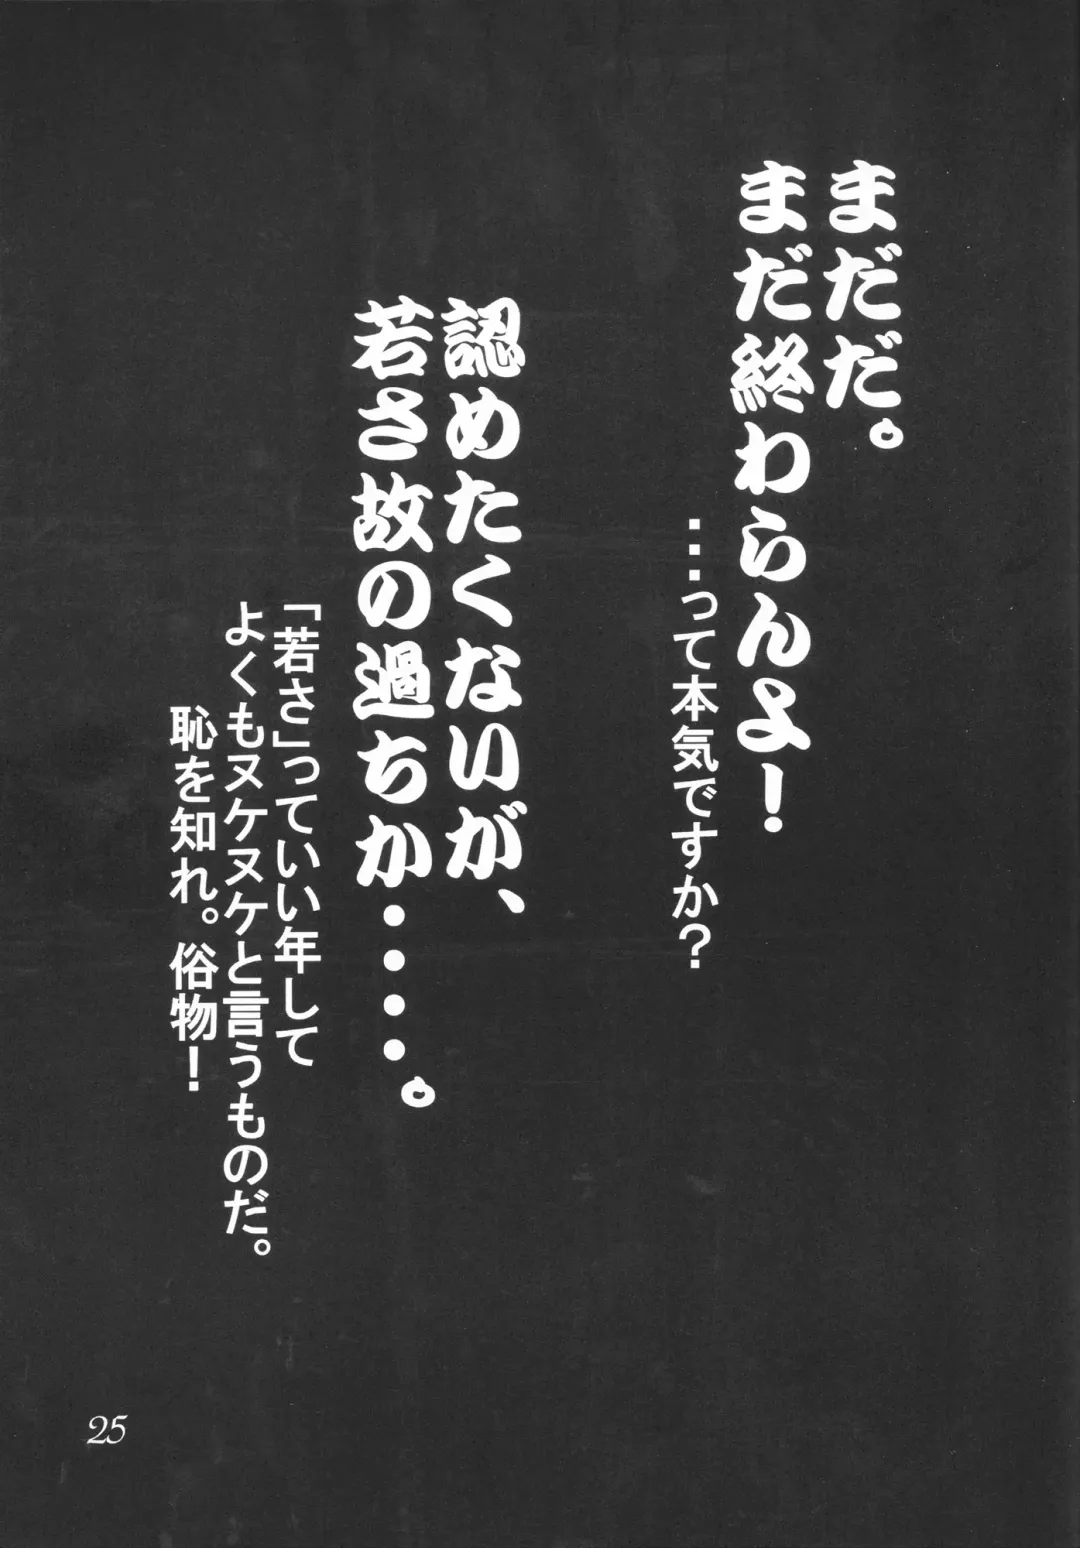 まだだ。
まだ終わらんよ！
...って本気ですか？
認めたくないが、
若さ故の過ちか・・・・。
「若さ」っていい年して
よくもヌケヌケと言うものだ。
恥を知れ。俗物！
25